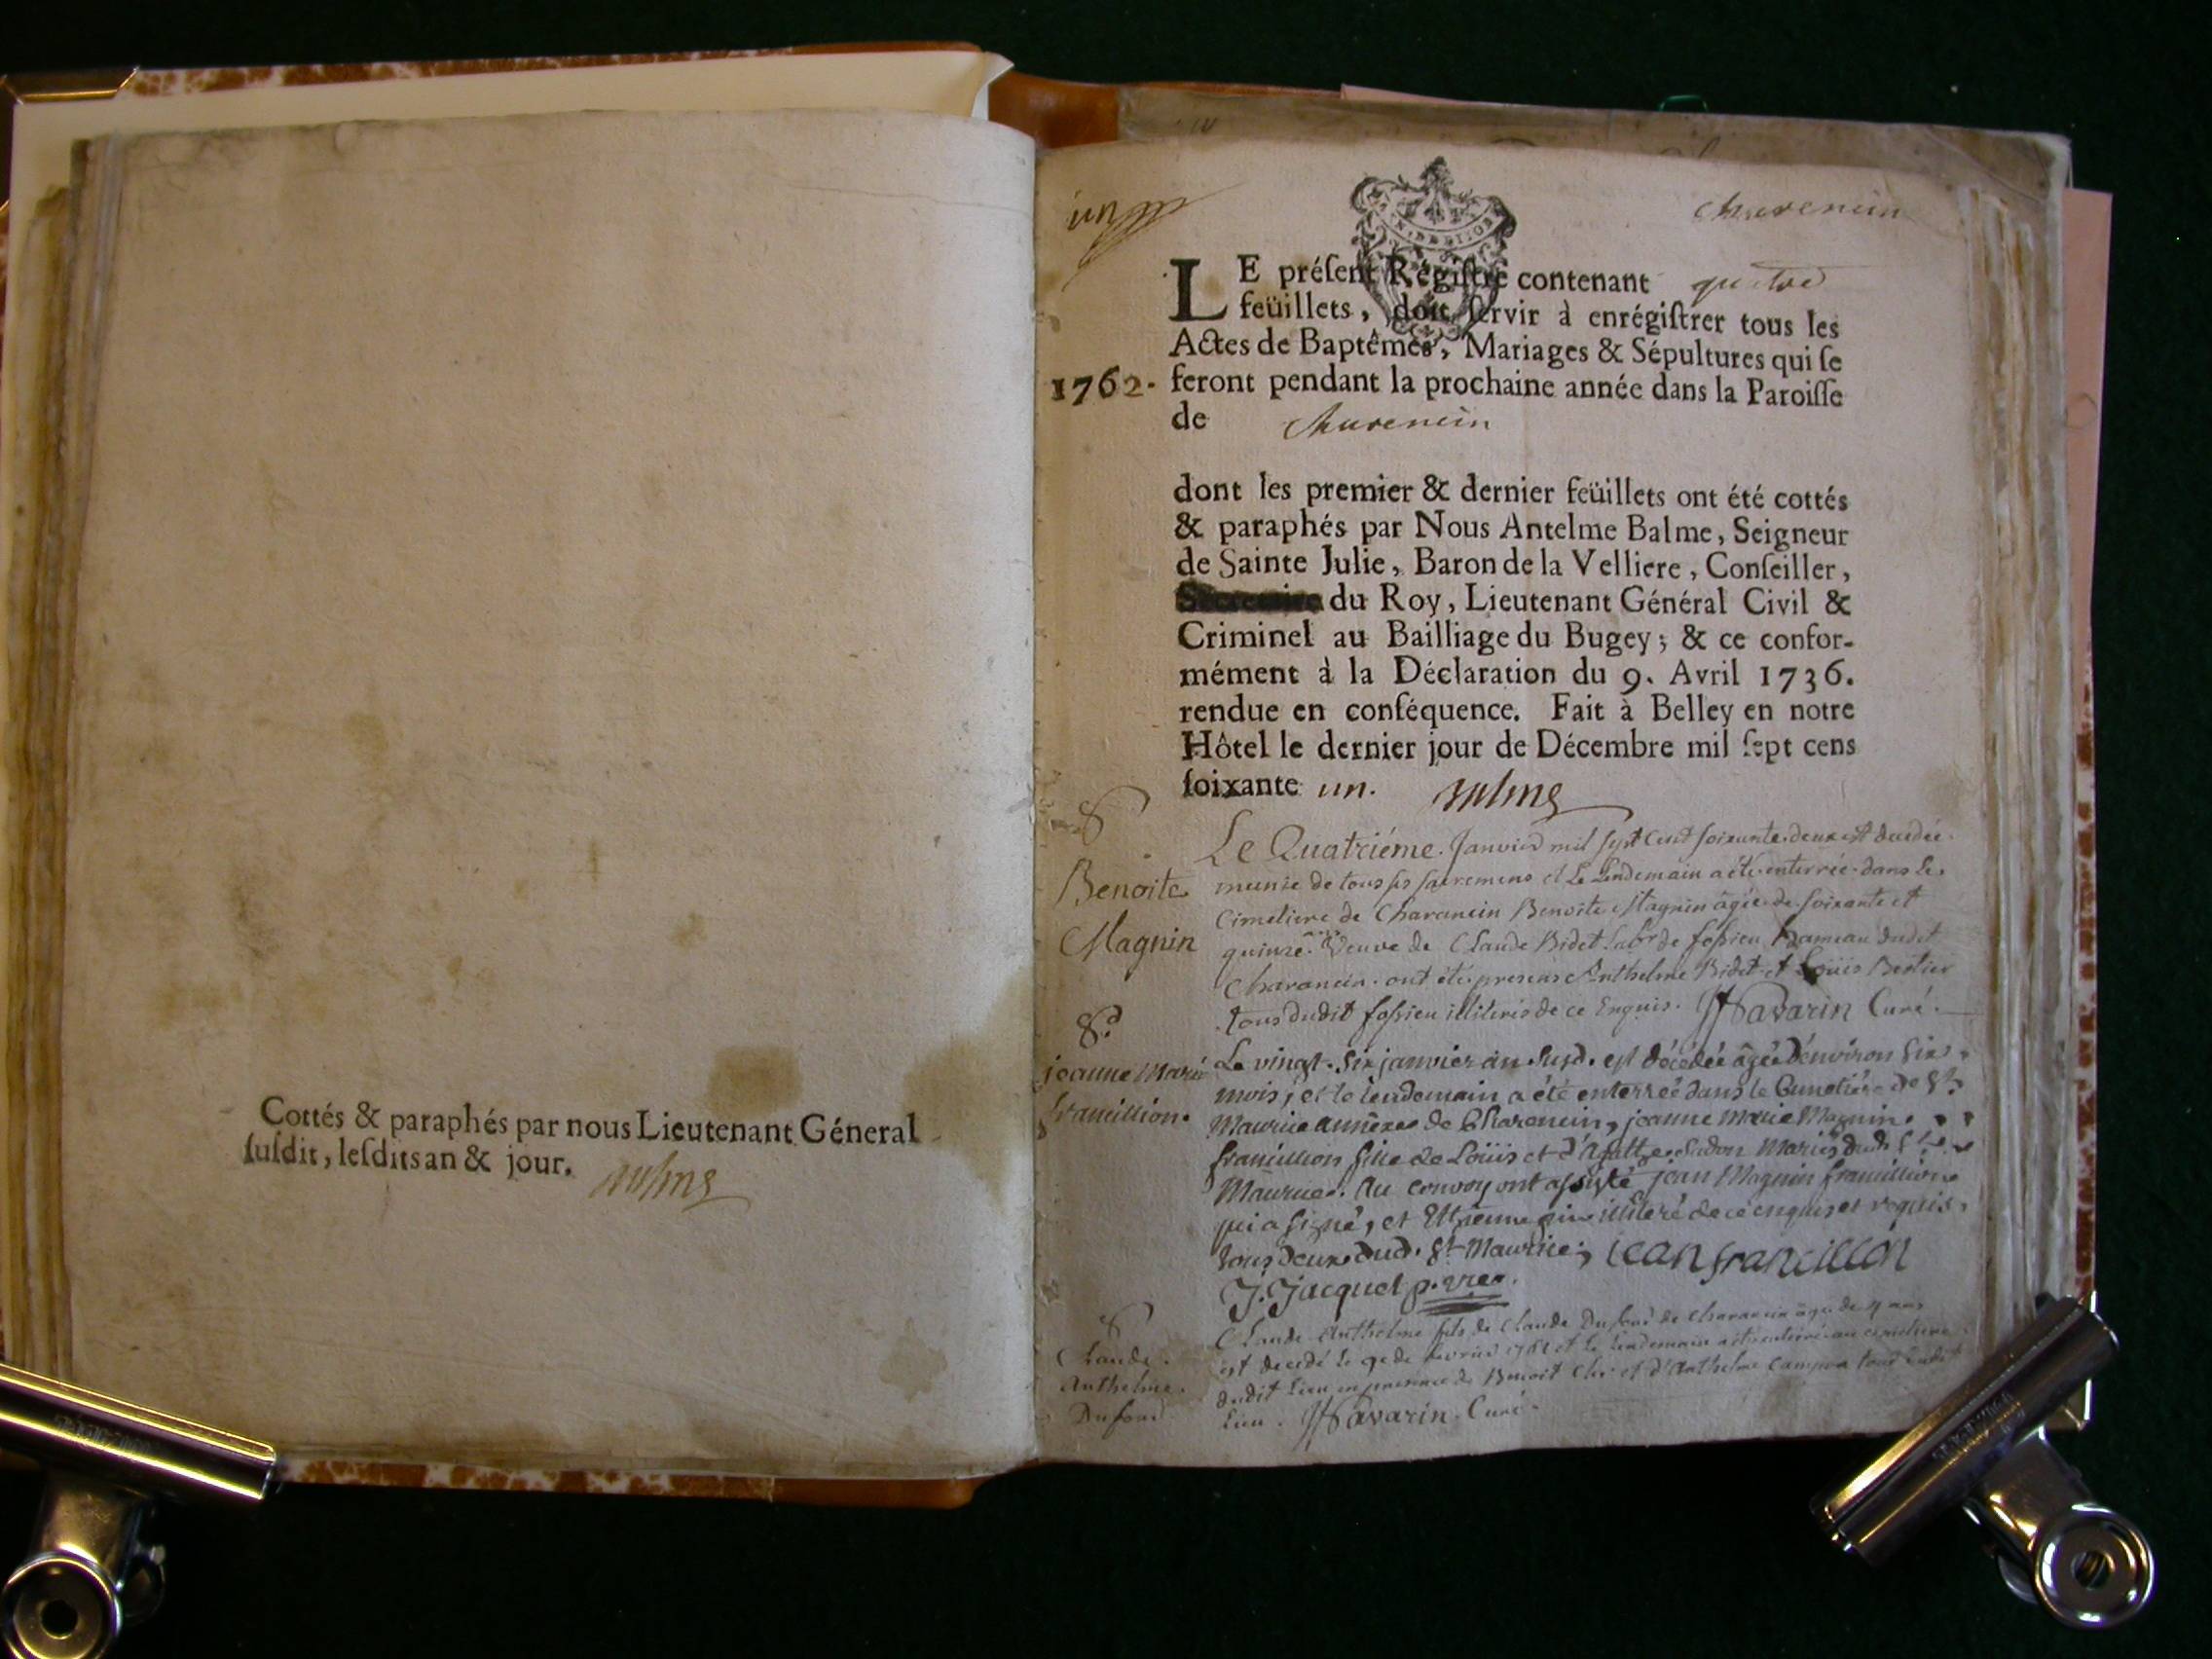 Cottés & paraphés par nous Lieutenant Géneral
ſuſdit, leſdits an & jour. Balme
un
Charencin
LE préſent Régiſtre contenant quatre
feüillets, doit ſervir à enrégiſtrer tous les
Actes de Baptêmes, Mariages & Sépultures qui ſe
1762. feront pendant la prochaine année dans la Paroiſſe
de Charencin
dont les premier & dernier feüillets ont été cottés
& paraphés par Nous Antelme Balme, Seigneur
de Sainte Julie, Baron de la Velliere, Conſeiller,
du Roy, Lieutenant Général Civil &
Criminel au Bailliage du Bugey; & ce confor-
mément à la Déclaration du 9. Avril 1736.
rendue en conféquence. Fait à Belley en notre
Hôtel le dernier jour de Décembre mil ſept cens
ſoixante un. Balme
S
Benoite
Magnin
Le Quatriéme Janvier mil sept cent soixante deux est decedée
munie de tous ses sacremens et le lendemain a été enterrée dans le
cimetiere de Charancin Benoite Magnin âgée de soixante et
quinze ans Veuve de Claude Bidet labr de fossieu hameau dudit
Charancin. ont été presens Anthelme Bidet et Loüis Bertier
tous dudit fossieu illiterés de ce Enquis. Savarin Curé.
S.
jeanne Marie
francillion.
Le vingt-six janvier an susd. est décédée âgée d'environ six
mois, et le lendemain a été enterreé dans le Cimetière de St
Maurice annexe de Charencin, jeanne marie Magnin
francillion fille de Loüis et d'Agathe mariés dud. St
Maurice. Au convoy ont assisté jean Magnin francillion
qui a signé, et Etienne illiteré de ce enquis et requis,
tous deux dud. St Maurice; jean francillion
J. Jacquet p. vic.
S
Claude
Anthelme
Dufour
Claude Anthelme fils de Claude Dufour de Charancin âgé de ans
est decedé le 9e de fevrier 1762 et le lendemain a été enterré au cimetiere
dudit lieu en presence de Benoit et d'Anthelme tous dudit
lieu. Savarin Curé.